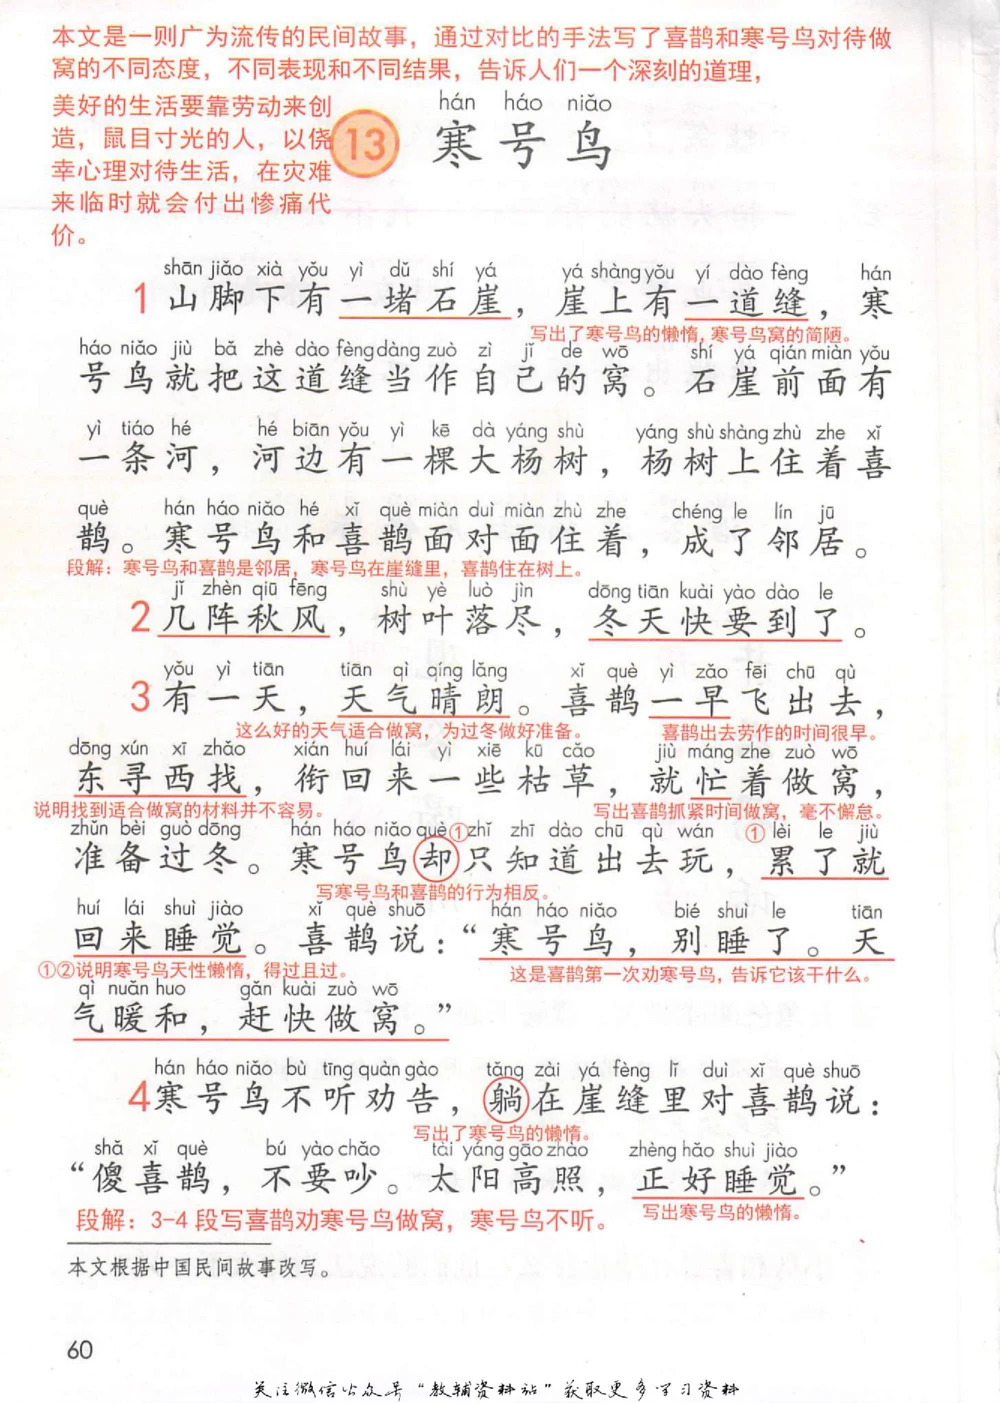 本文是一则广为流传的民间故事，通过对比的手法写了喜鹊和寒号鸟对待做
窝的不同态度，不同表现和不同结果，告诉人们一个深刻的道理，
美好的生活要靠劳动来创
造，鼠目寸光的人，以侥
幸心理对待生活，在灾难
来临时就会付出惨痛代
价。
hán háo niǎo
13 寒号鸟
shān jiǎo xià yǒu yì dǔ shí yá yá shàng yǒu yí dào fèng hán
1 山脚下有一堵石崖，崖上有一道缝，寒
写出了寒号鸟的懒惰，寒号鸟窝的简陋。
háo niǎo jiù bǎ zhè dào fèng dàng zuò zì jǐ de wō shí yá qián miàn yǒu
号鸟就把这道缝当作自己的窝。石崖前面有
yì tiáo hé hé biān yǒu yì kē dà yáng shù yáng shù shàng zhù zhe xǐ
一条河，河边有一棵大杨树，杨树上住着喜
què hán háo niǎo hé xǐ què miàn duì miàn zhù zhe chéng le lín jū
鹊。寒号鸟和喜鹊面对面住着，成了邻居。
段解：寒号鸟和喜鹊是邻居，寒号鸟在崖缝里，喜鹊住在树上。
jǐ zhèn qiū fēng shù yè luò jìn dōng tiān kuài yào dào le
2 几阵秋风，树叶落尽，冬天快要到了。
yǒu yì tiān tiān qì qíng lǎng xǐ què yì zǎo fēi chū qù
3 有一天，天气晴朗。喜鹊一早飞出去，
这么好的天气适合做窝，为过冬做好准备。 喜鹊出去劳作的时间很早。
dōng xún xī zhǎo xián huí lái yì xiē kū cǎo jiù máng zhe zuò wō
东寻西找，衔回来一些枯草，就忙着做窝，
说明找到适合做窝的材料并不容易。 写出喜鹊抓紧时间做窝，毫不懈怠。
zhǔn bèi guò dōng hán háo niǎo què ①zhǐ zhī dào chū qù wán ① lèi le jiù
准备过冬。寒号鸟却只知道出去玩，累了就
写寒号鸟和喜鹊的行为相反。
huí lái shuì jiào xǐ què shuō hán háo niǎo bié shuì le tiān
回来睡觉。喜鹊说：“寒号鸟，别睡了。天
①②说明寒号鸟天性懒惰，得过且过。 这是喜鹊第一次劝寒号鸟，告诉它该干什么。
qì nuǎn huo gǎn kuài zuò wō
气暖和，赶快做窝。”
hán háo niǎo bù tīng quàn gào tǎng zài yá fèng lǐ duì xǐ què shuō
4 寒号鸟不听劝告，躺在崖缝里对喜鹊说：
写出了寒号鸟的懒惰。
shǎ xǐ què bú yào chǎo tài yáng gāo zhào zhèng hǎo shuì jiào
“傻喜鹊，不要吵。太阳高照，正好睡觉。”
写出寒号鸟的懒惰。
段解：3-4 段写喜鹊劝寒号鸟做窝，寒号鸟不听。
本文根据中国民间故事改写。
60
关注微信公众号“教辅资料站”获取更多学习资料